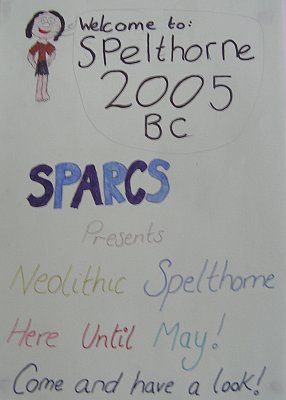 Welcome to:
Spelthorne
2005
BC
SPARCS
Presents
Neolithic Spelthorne
Here Until May!
Come and have a look!